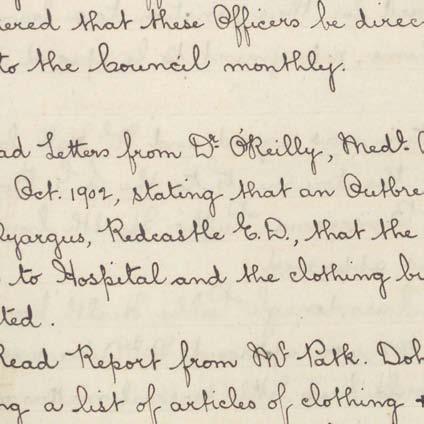 ered that these Officers be direc
to the Council monthly.
ad Letters from Dr. O'Reilly, Medl.
Oct. 1902, stating that an Outbre
yargus, Redcastle E.D., that the
to Hospital and the clothing bu
ted.
Read Report from Mr Patk. Doh
ng a list of articles of clothing